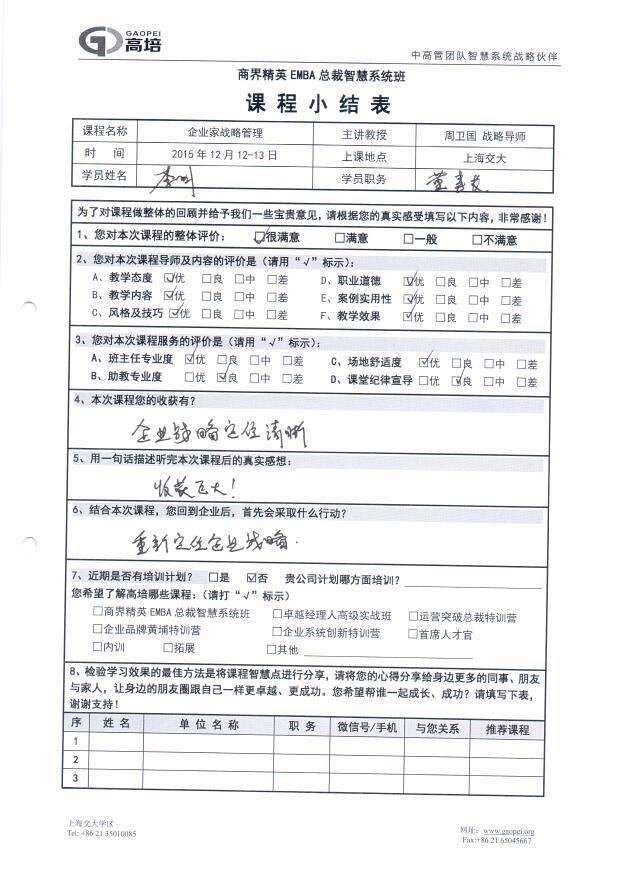 GAOPEI
高培
中高管团队智慧系统战略伙伴
商界精英 EMBA 总裁智慧系统班
课程小结表
课程名称 企业家战略管理 主讲教授 周卫国 战略导师
时 间 2015 年 12 月 12-13 日 上课地点 上海交大
学员姓名 学员职务 董事长
为了对课程做整体的回顾并给予我们一些宝贵意见，请根据您的真实感受填写以下内容，非常感谢！
1、您对本次课程的整体评价： ☑很满意 □满意 □一般 □不满意
2、您对本次课程导师及内容的评价是（请用“√”标示）：
A、教学态度 ☑优 □良 □中 □差 D、职业道德 ☑优 □良 □中 □差
B、教学内容 ☑优 □良 □中 □差 E、案例实用性 ☑优 □良 □中 □差
C、风格及技巧 ☑优 □良 □中 □差 F、教学效果 ☑优 □良 □中 □差
3、您对本次课程服务的评价是（请用“√”标示）：
A、班主任专业度 ☑优 □良 □中 □差 C、场地舒适度 ☑优 □良 □中 □差
B、助教专业度 □优 ☑良 □中 □差 D、课堂纪律宣导 □优 ☑良 □中 □差
4、本次课程您的收获有？
企业战略定位清晰
5、用一句话描述听完本次课程后的真实感想：
收获巨大！
6、结合本次课程，您回到企业后，首先会采取什么行动？
重新定位企业战略.
7、近期是否有培训计划？ □是 ☑否 贵公司计划哪方面培训？
您希望了解高培哪些课程：（请打“√”标示）
□商界精英 EMBA 总裁智慧系统班 □卓越经理人高级实战班 □运营突破总裁特训营
□企业品牌黄埔特训营 □企业系统创新特训营 □首席人才官
□内训 □拓展 □其他
8、检验学习效果的最佳方法是将课程智慧点进行分享，请将您的心得分享给身边更多的同事、朋友
与家人，让身边的朋友圈跟自己一样更卓越、更成功。您希望帮谁一起成长、成功？请填写下表，
谢谢支持！
序 姓 名 单 位 名 称 职 务 微信号/手机 与您关系 推荐课程
1
2
3
上海交大学区
Tel: +86 21 35010085
网址：www.gaopei.org
Fax:+86 21 65045667